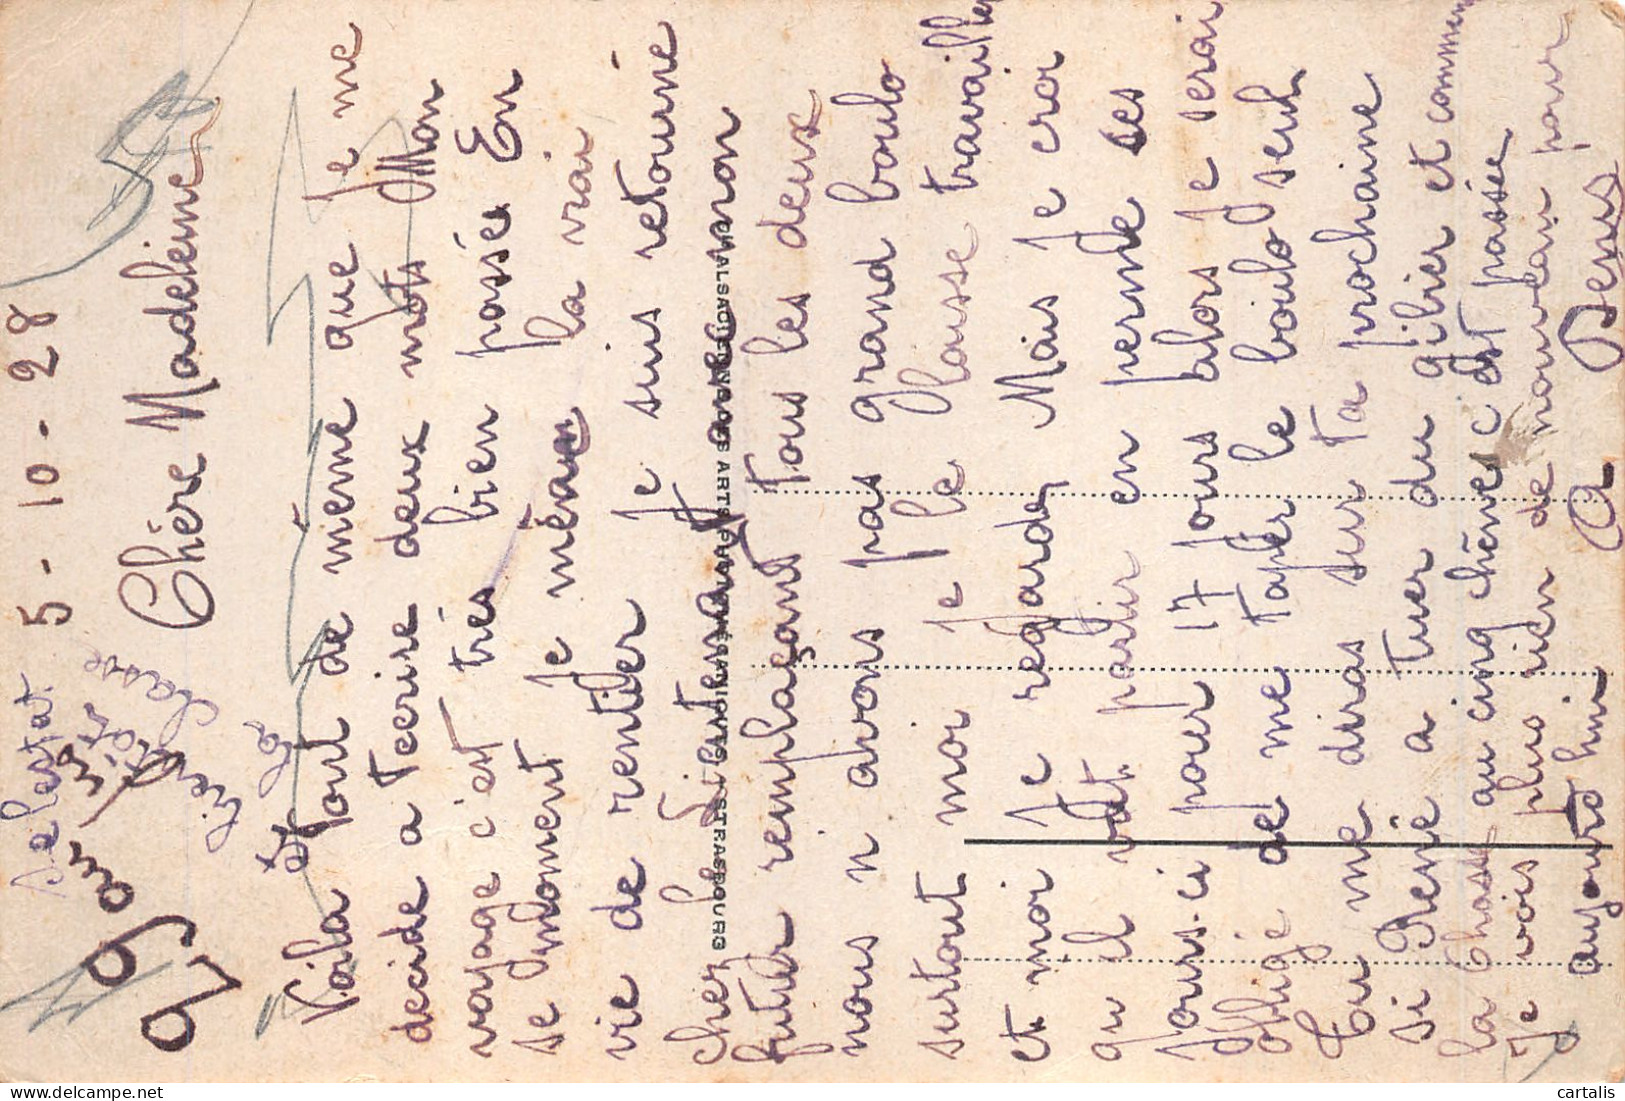 Selestat. 5-10-28
Chère Madeleine
Voila tout de même que je me
decide a t ecrire deux mots Mon
voyage c'est très bien passé En
se moment je mène la vrai
vie de rentier Je suis retourné
chez le lieutenant avec mon
futur remplaçant Tous les deux
nous n avons pas grand boulo
surtout moi je le laisse travailler
et moi Je regarde Mais Je croi
qu il vat partir en perme ses
jours-ci pour 17 jours alors Je serai
obligé de me taper le boulo seul.
Tu me diras sur ta prochaine
si René a tuer du gibier et comment
la Chasse au cinq chênes c est passée
Je vois plus rien de nouveau pour
aujourd hui A Deus
CIE ALSACIENNE DES ARTS PHOTOMÉCANIQUES, STRASBOURG
cartalis